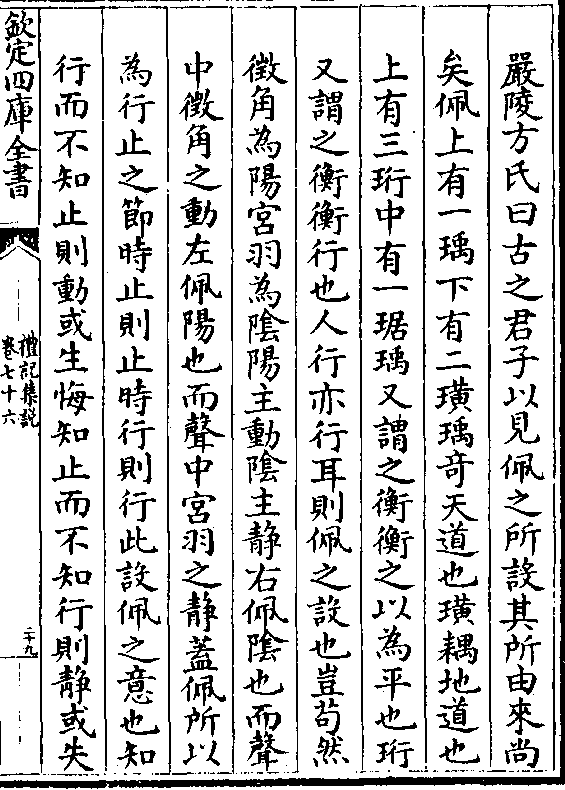 嚴陵方氏曰古之君子以見佩之所設其所由來尚
矣佩上有一瑀下有二璜瑀竒天道也璜耦地道也
上有三珩中有一琚瑀又謂之衡衡之以為平也珩
又謂之衡衡行也人行亦行耳則佩之設也豈茍然
徴角為陽宫羽為隂陽主動隂主静右佩隂也而聲
中徴角之動左佩陽也而聲中宫羽之静蓋佩所以
為行止之節時止則止時行則行此設佩之意也知
行而不知止則動或生悔知止而不知行則静或失
欽定四庫全書
禮記集説
卷七十六
二十九